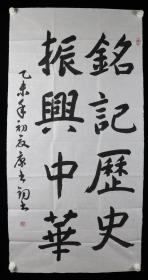 銘記歷史
振興中華
乙未年初夏康書詞書